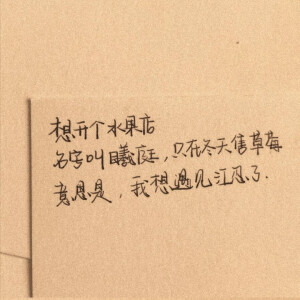 想开个水果店
名字叫曦庭，只在冬天售草莓
意思是，我想遇见江忍了.